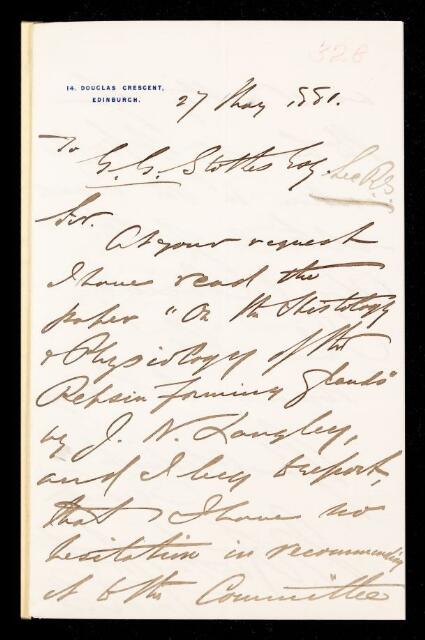 328
14. DOUGLAS CRESCENT,
EDINBURGH.
27 May 1881.
To
G. G. Stokes Esq. Sec R.S.
Sir.
At your request
I have read the
paper "On the Histology
& Physiology of the
Pepsin forming Glands"
by J. N. Langley,
and I beg to report,
that I have no
hesitation in recommending
it to the Committee